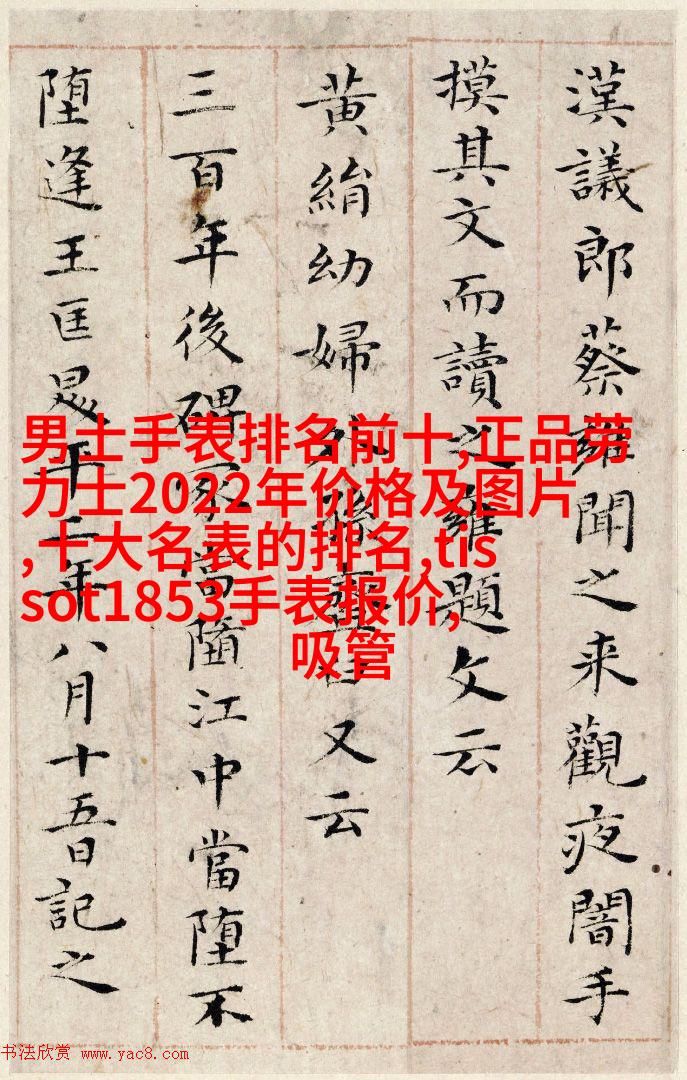 漢議郎蔡雍聞之来觀夜闇手
摸其文而讀之雍題文云
黄絹幼婦外孫臼又云
三百年後碑冢當墮江中當墮不
墮逢王匡昇平二年八月十五日記之
男士手表排名前十,正品劳
力士2022年价格及图片
,十大名表的排名,tis
sot1853手表报价,
吸管
书法欣赏 www.yac8.com